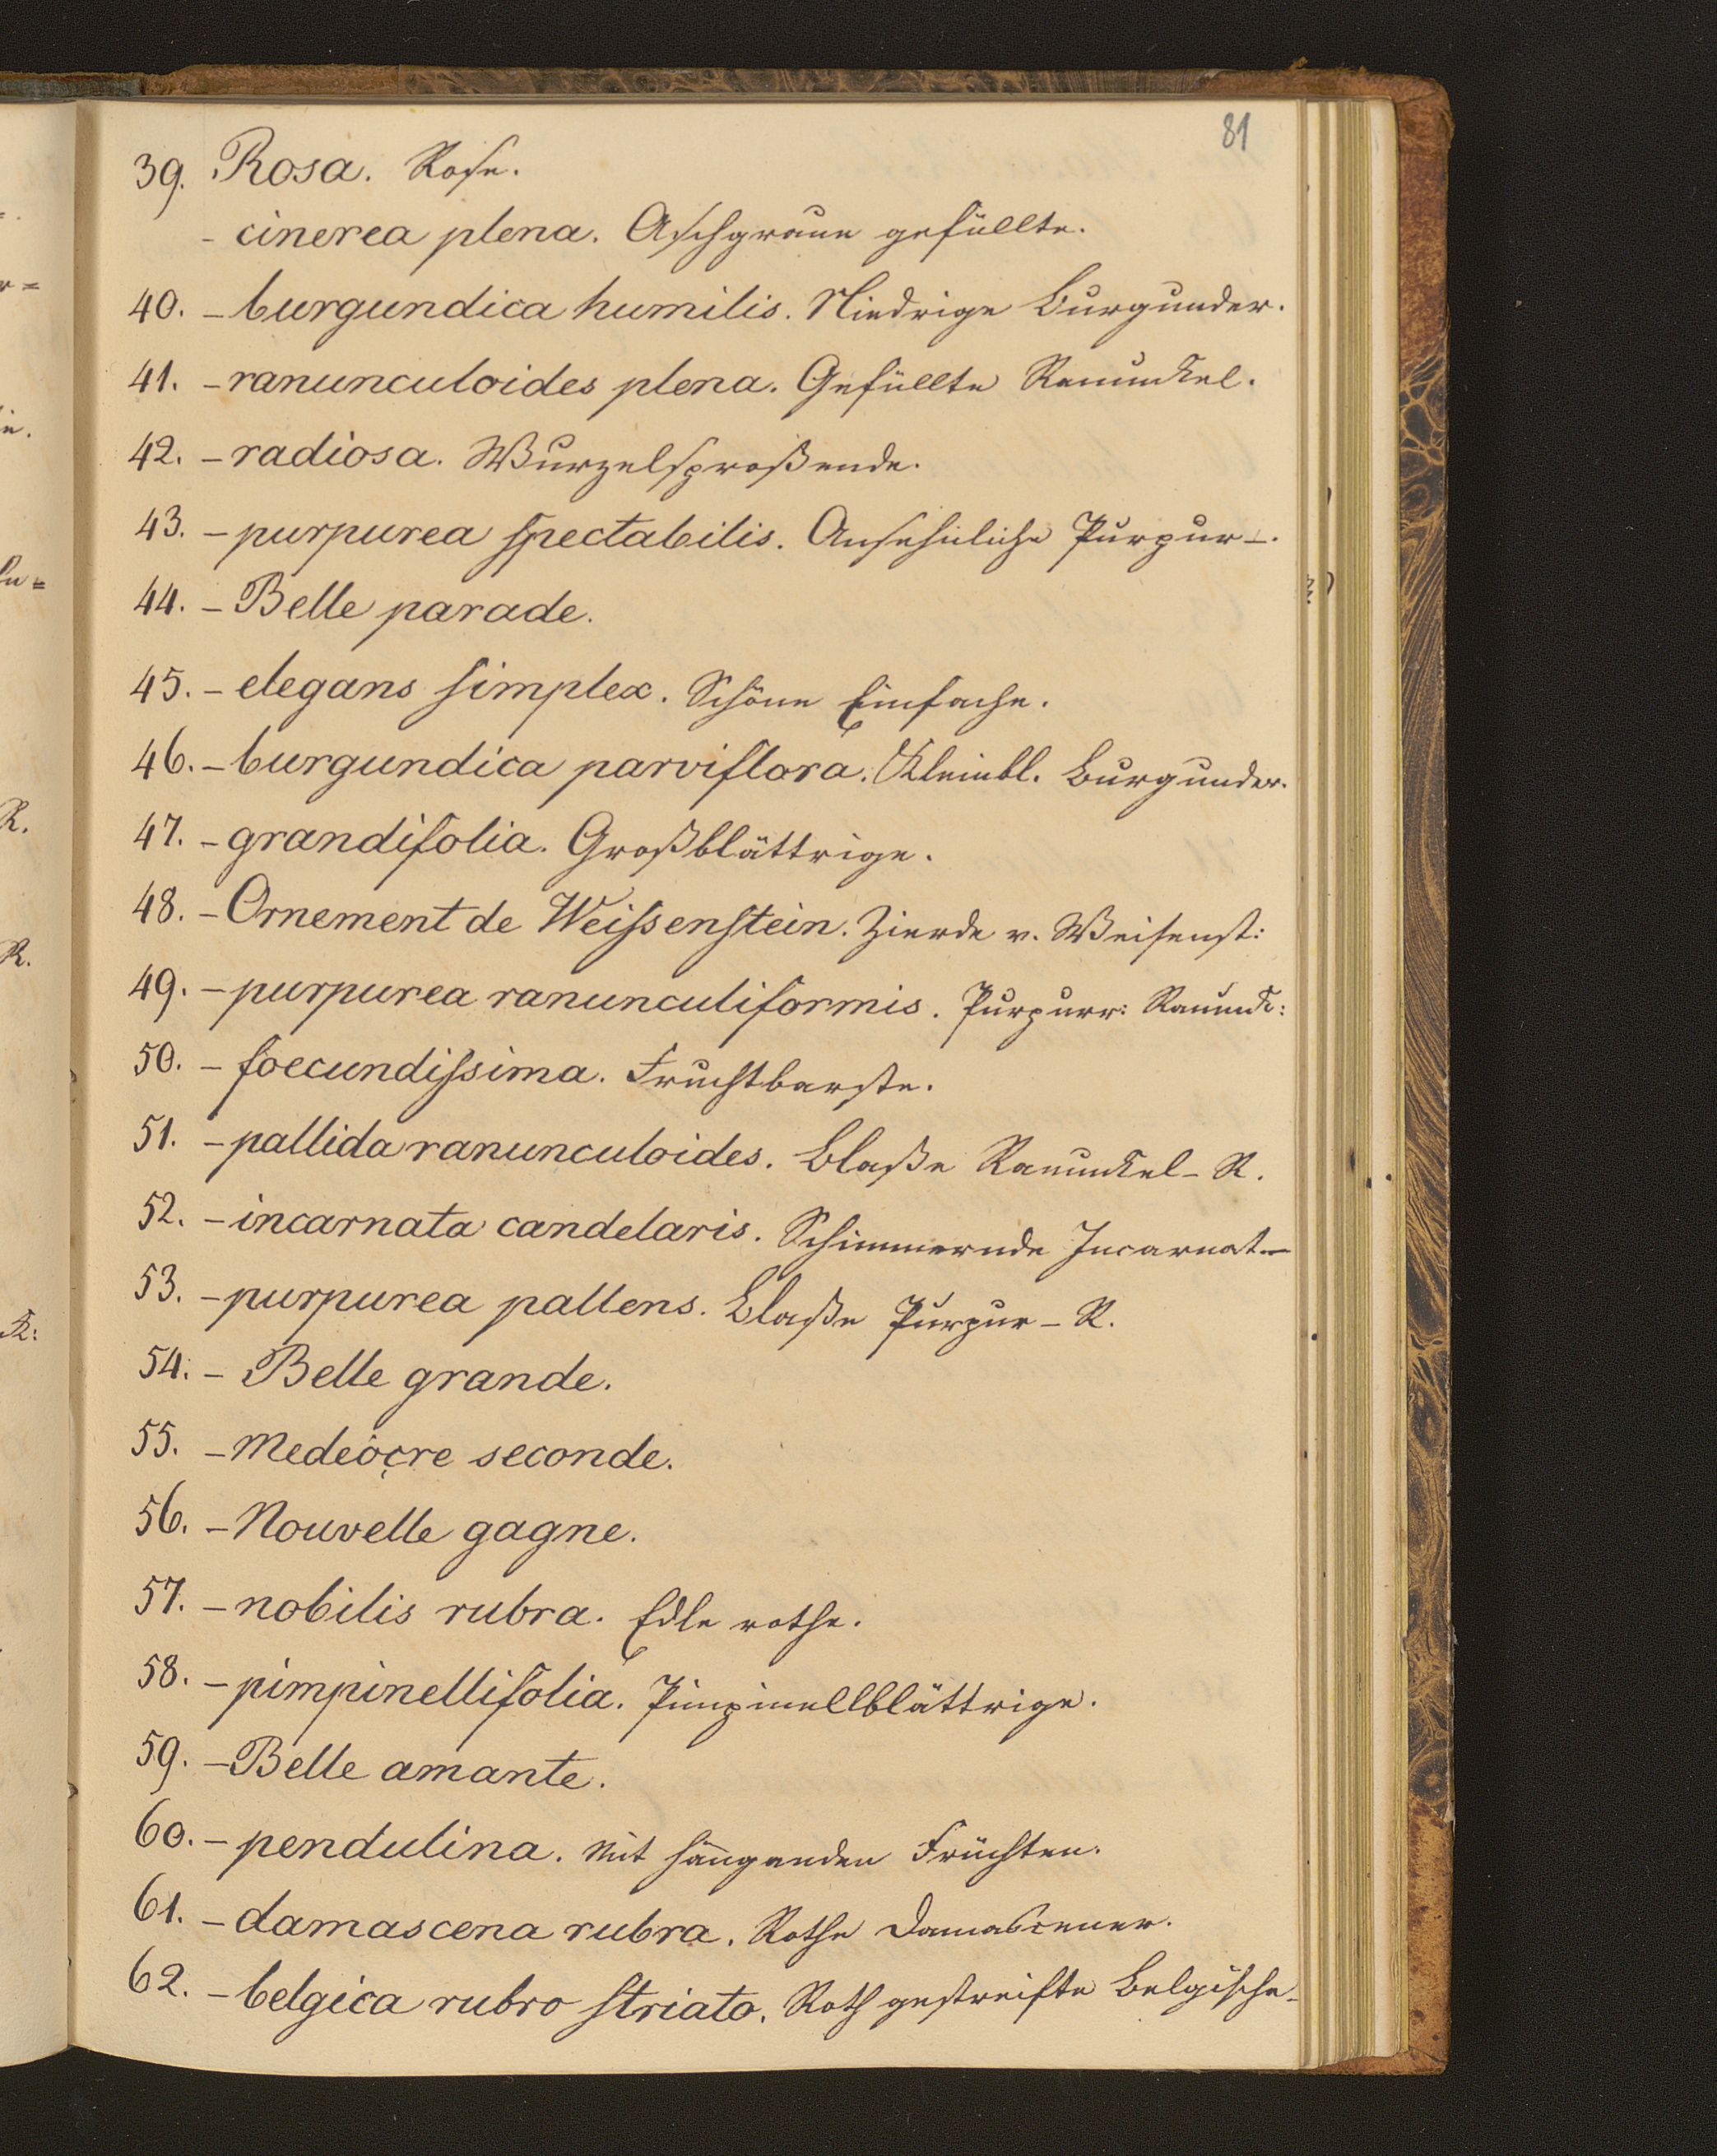 81
39. Rosa. Rose.
- cinerea plena. Aschgraue gefüllte.
40. - burgundica humilis. Niedrige Burgunder.
41. - ranunculoides plena. Gefüllte Ranunckel.
42. - radiosa. Wurzelsproßende.
43. - purpurea spectabilis. Ansehnliche Purpur-.
44. - Belle parade.
45. - elegans simplex. Schöne Einfache.
46. - burgundica parviflora. Kleinbl. Burgunder.
47. - grandifolia. Großblättrige.
48. - Ornement de Weissenstein. Zierde v. Weisenst:
49. - purpurea ranunculiformis. Purpurr: Ranunk:
50. - foecundissima. Fruchtbarste.
51. - pallida ranunculoides. Blaße Ranunckel-R.
52. - incarnata candelaris. Schimmernde Incarnat-
53. - purpurea pallens. Blaße Purpur-R.
54. - Belle grande.
55. - Medeocre seconde.
56. - Nouvelle gagne.
57. - nobilis rubra. Edle rothe.
58. - pimpinellifolia. Pimpinellblättrige.
59. - Belle amante.
60. - pendulina. Mit hängenden Früchten.
61. - damascena rubra. Rothe Damascener.
62. - belgica rubro striato. Roth gestreifte Belgische-